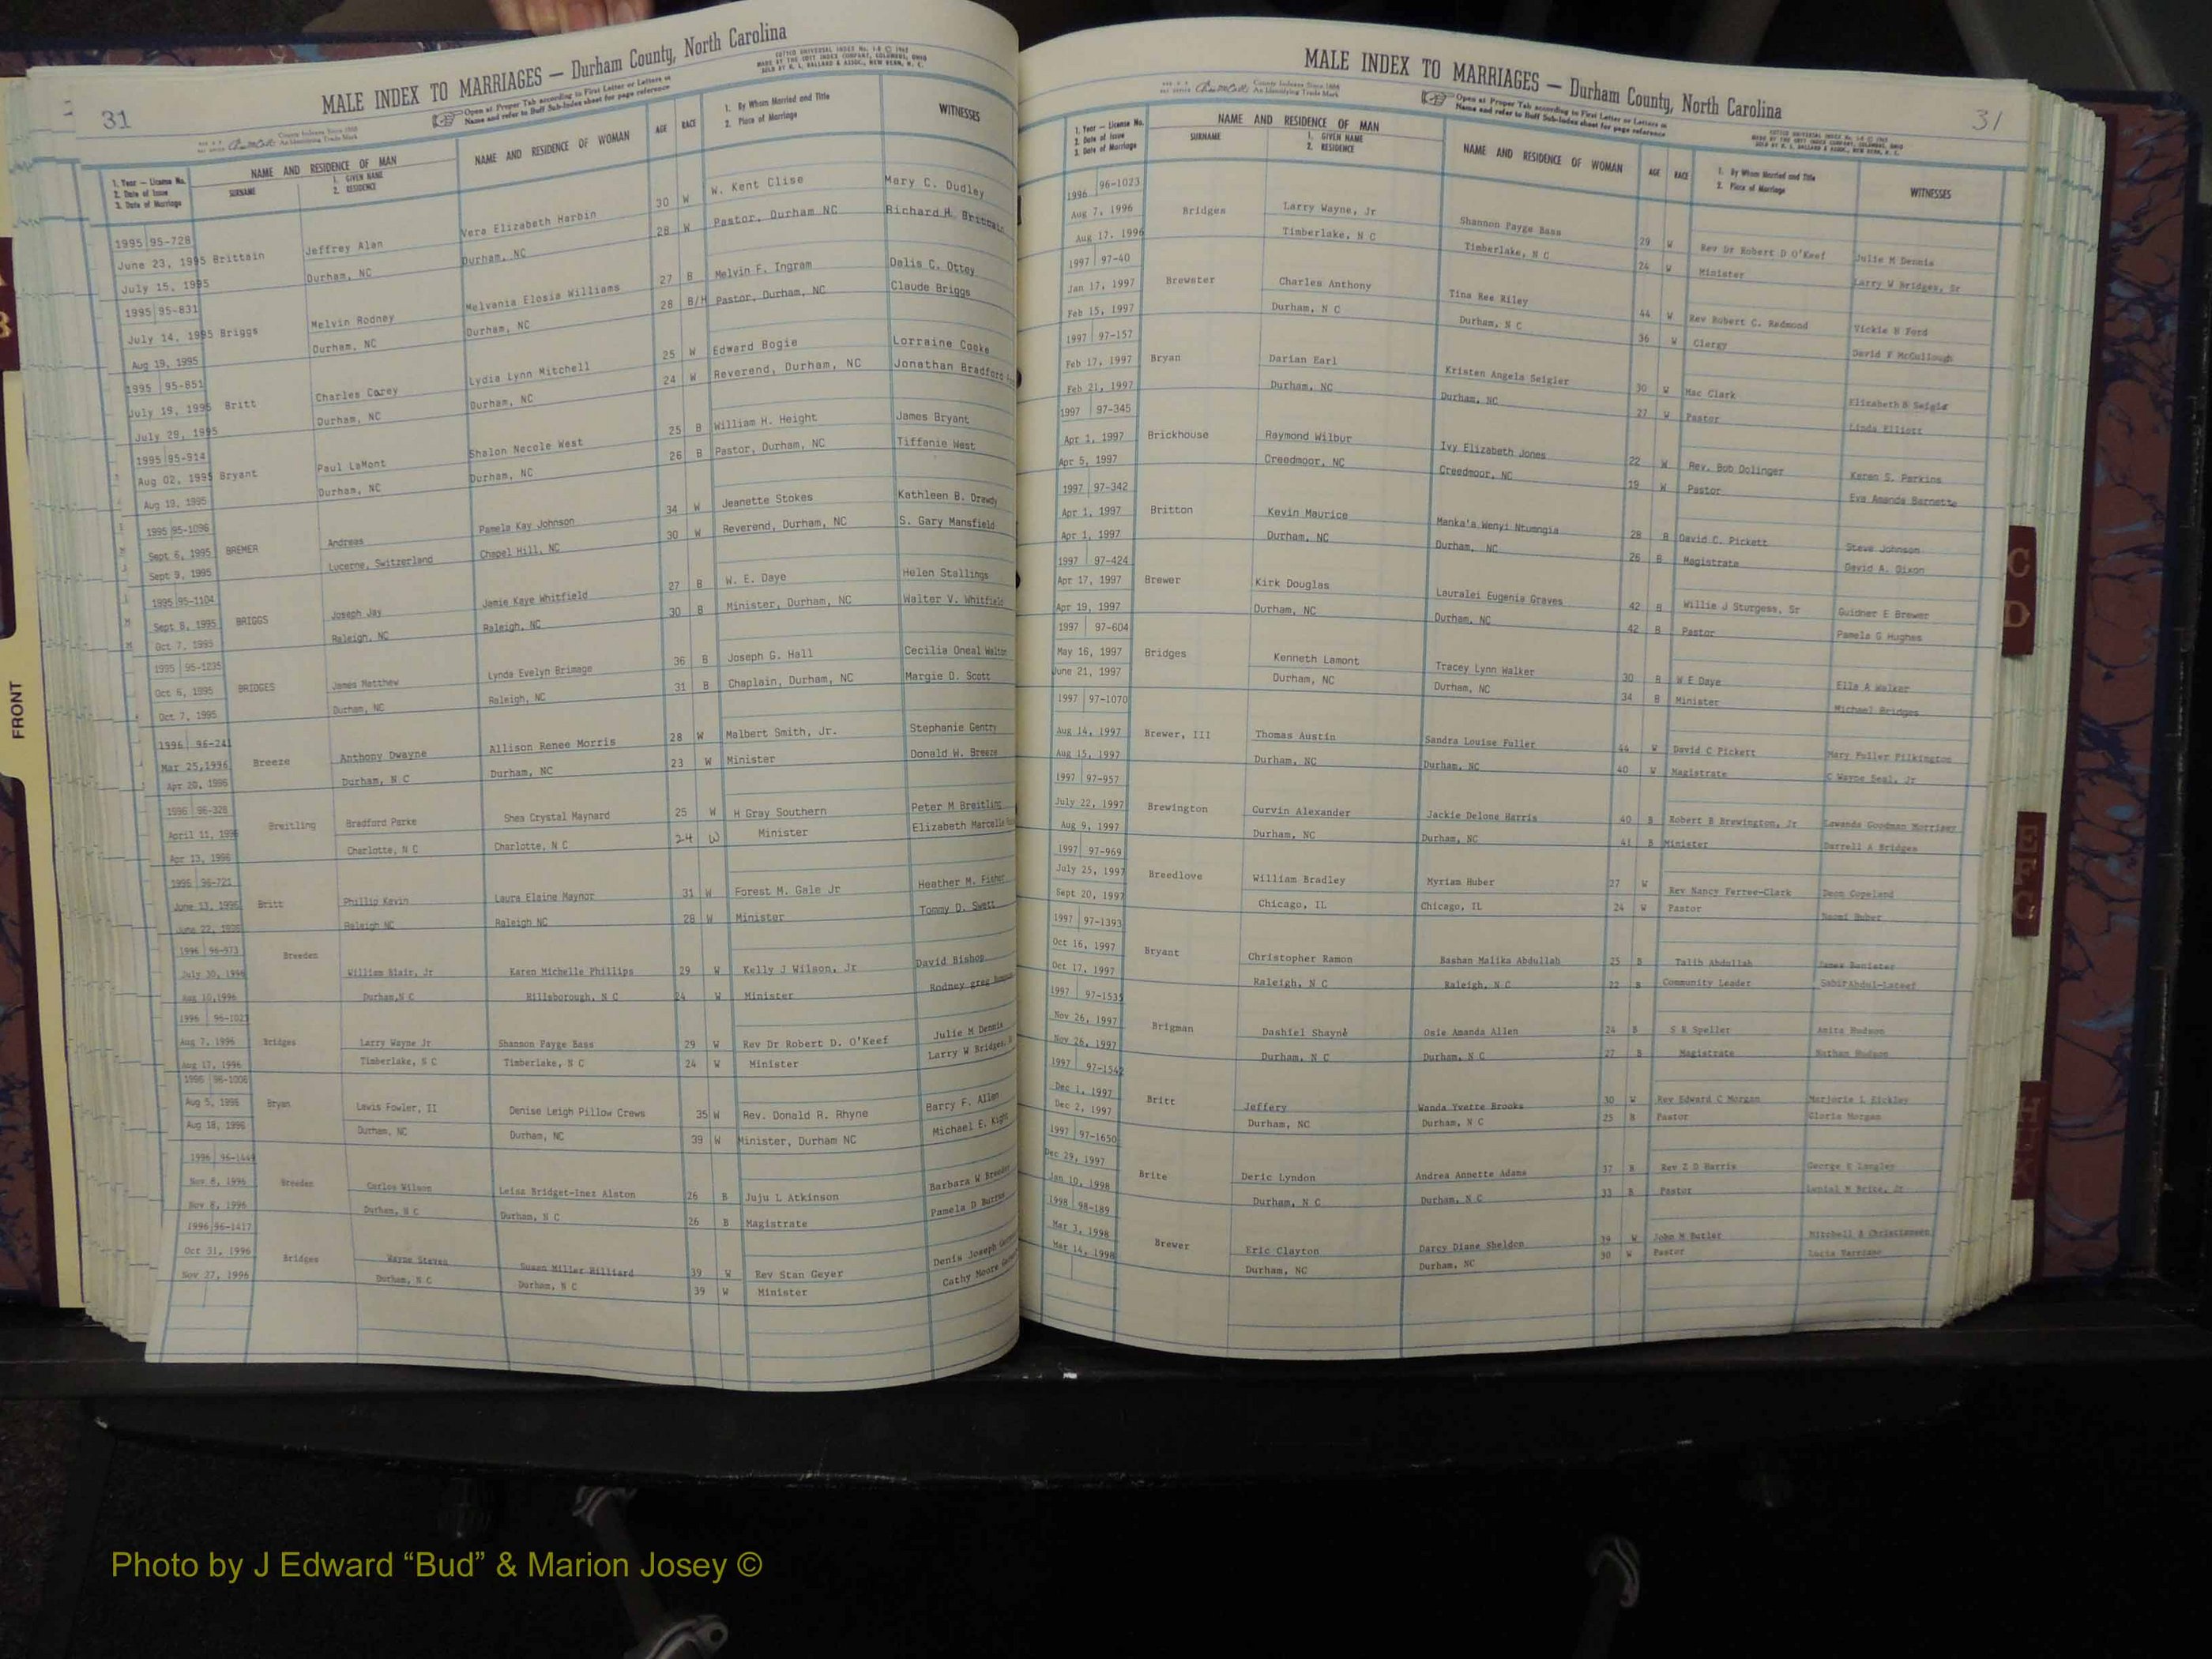 31
MALE INDEX TO MARRIAGES — Durham County, North Carolina
Open at Proper Tab according to First Letter or Letters of
Name and refer to Buff Sub-Index sheet for page reference
COTTCO UNIVERSAL INDEX No. 1-8 © 1963
MADE BY THE COTT INDEX COMPANY, COLUMBUS, OHIO
SOLD BY R. L. BALLARD & ASSOC., NEW BERN, N. C.
County Indexes Since 1888
An Identifying Trade Mark
1. Year — License No.
2. Date of Issue
3. Date of Marriage
NAME AND RESIDENCE OF MAN
SURNAME
1. GIVEN NAME
2. RESIDENCE
NAME AND RESIDENCE OF WOMAN
AGE RACE
1. By Whom Married and Title
2. Place of Marriage
WITNESSES
1995 95-728
June 23, 1995 Brittain Jeffrey Alan Vera Elizabeth Harbin 30 W W. Kent Clise Mary C. Dudley
July 15, 1995 Durham, NC Durham, NC 28 W Pastor, Durham NC Richard H. Brittain
1995 95-831
July 14, 1995 Briggs Melvin Rodney Melvania Elosia Williams 27 B Melvin F. Ingram Dalis C. Ottey
Aug 19, 1995 Durham, NC Durham, NC 28 B/H Pastor, Durham, NC Claude Briggs
1995 95-851
July 19, 1995 Britt Charles Carey Lydia Lynn Mitchell 25 W Edward Bogie Lorraine Cooke
July 29, 1995 Durham, NC Durham, NC 24 W Reverend, Durham, NC Jonathan Bradford
1995 95-914
Aug 02, 1995 Bryant Paul LaMont Shalon Necole West 25 B William H. Height James Bryant
Aug 19, 1995 Durham, NC Durham, NC 26 B Pastor, Durham, NC Tiffanie West
1995 95-1096
Sept 6, 1995 BREMER Andreas Pamela Kay Johnson 34 W Jeanette Stokes Kathleen B. Drewdy
Sept 9, 1995 Lucerne, Switzerland Chapel Hill, NC 30 W Reverend, Durham, NC S. Gary Mansfield
1995 95-1104
Sept 8, 1995 BRIGGS Joseph Jay Jamie Kaye Whitfield 27 B W. E. Daye Helen Stallings
Oct 7, 1995 Raleigh, NC Raleigh, NC 30 B Minister, Durham, NC Walter V. Whitfield
1995 95-1235
Oct 6, 1995 BRIDGES James Matthew Lynda Evelyn Brimage 36 B Joseph G. Hall Cecilia Oneal Walton
Oct 7, 1995 Durham, NC Raleigh, NC 31 B Chaplain, Durham, NC Margie D. Scott
1996 96-241
Mar 25,1996 Breeze Anthony Dwayne Allison Renee Morris 28 W Malbert Smith, Jr. Stephanie Gentry
Apr 20, 1996 Durham, N C Durham, NC 23 W Minister Donald W. Breeze
1996 96-328
April 11, 1996 Breitling Bradford Parke Shea Crystal Maynard 25 W H Gray Southern Peter M Breitling
Apr 13, 1996 Charlotte, N C Charlotte, N C 24 W Minister Elizabeth Marcella
1996 96-721
June 13, 1996 Britt Phillip Kevin Laura Elaine Maynor 31 W Forest M. Gale Jr Heather M. Fisher
June 22, 1996 Raleigh NC Raleigh NC 28 W Minister Tommy D. Swett
1996 96-973
July 30, 1996 Breeden William Blair, Jr Karen Michelle Phillips 29 W Kelly J Wilson, Jr David Bishop
Aug 10,1996 Durham,N C Hillsborough, N C 24 W Minister Rodney greg
1996 96-1023
Aug 7, 1996 Bridges Larry Wayne Jr Shannon Payge Bass 29 W Rev Dr Robert D. O'Keef Julie M Dennis
Aug 17, 1996 Timberlake, N C Timberlake, N C 24 W Minister Larry W Bridges,
1996 96-1006
Aug 5, 1996 Bryan Lewis Fowler, II Denise Leigh Pillow Crews 35 W Rev. Donald R. Rhyne Barry F. Allen
Aug 18, 1996 Durham, NC Durham, NC 39 W Minister, Durham NC Michael E. Kight
1996 96-1449
Nov 8, 1996 Breeden Carlos Wilson Leisa Bridget-Inez Alston 26 B Juju L Atkinson Barbara W Breeden
Nov 8, 1996 Durham, N C Durham, N C 26 B Magistrate Pamela D Burton
1996 96-1417
Oct 31, 1996 Bridges Wayne Steven Susan Miller Hilliard 39 W Rev Stan Geyer Denis Joseph
Nov 27, 1996 Durham, N C Durham, N C 39 W Minister Cathy Moore
MALE INDEX TO MARRIAGES — Durham County, North Carolina
31
County Indexes Since 1888
An Identifying Trade Mark
Open at Proper Tab according to First Letter or Letters of
Name and refer to Buff Sub-Index sheet for page reference
COTTCO UNIVERSAL INDEX No. 1-8 © 1963
MADE BY THE COTT INDEX COMPANY, COLUMBUS, OHIO
SOLD BY R. L. BALLARD & ASSOC., NEW BERN, N. C.
1. Year — License No.
2. Date of Issue
3. Date of Marriage
NAME AND RESIDENCE OF MAN
SURNAME
1. GIVEN NAME
2. RESIDENCE
NAME AND RESIDENCE OF WOMAN
AGE RACE
1. By Whom Married and Title
2. Place of Marriage
WITNESSES
1996 96-1023
Aug 7, 1996 Bridges Larry Wayne, Jr Shannon Payge Bass 29 W Rev Dr Robert D O'Keef Julie M Dennis
Aug 17, 1996 Timberlake, N C Timberlake, N C 24 W Minister Larry W Bridges, Sr
1997 97-40
Jan 17, 1997 Brewster Charles Anthony Tina Ree Riley 44 W Rev Robert C. Redmond Vickie H Ford
Feb 15, 1997 Durham, N C Durham, N C 36 W Clergy David F McCullough
1997 97-157
Feb 17, 1997 Bryan Darian Earl Kristen Angela Seigler 30 W Mac Clark Elizabeth B Seigle
Feb 21, 1997 Durham, NC Durham, NC 27 W Pastor Linda Elliott
1997 97-345
Apr 1, 1997 Brickhouse Raymond Wilbur Ivy Elizabeth Jones 22 W Rev. Bob Dolinger Karen S. Perkins
Apr 5, 1997 Creedmoor, NC Creedmoor, NC 19 W Pastor Eva Amanda Barnette
1997 97-342
Apr 1, 1997 Britton Kevin Maurice Manka'a Wenyi Ntumngia 28 B David C. Pickett Steve Johnson
Apr 1, 1997 Durham, NC Durham, NC 26 B Magistrate David A. Dixon
1997 97-424
Apr 17, 1997 Brewer Kirk Douglas Lauralei Eugenia Graves 42 B Willie J Sturgess, Sr Guidner E Brewer
Apr 19, 1997 Durham, NC Durham, NC 42 B Pastor Pamela G Hughes
1997 97-604
May 16, 1997 Bridges Kenneth Lamont Tracey Lynn Walker 30 B W E Daye Ella A Walker
June 21, 1997 Durham, NC Durham, NC 34 B Minister Michael Bridges
1997 97-1070
Aug 14, 1997 Brewer, III Thomas Austin Sandra Louise Fuller 44 W David C Pickett Mary Fuller Pilkington
Aug 15, 1997 Durham, NC Durham, NC 40 W Magistrate C Wayne Seal, Jr
1997 97-957
July 22, 1997 Brewington Curvin Alexander Jackie Delone Harris 40 B Robert B Brewington, Jr Lawanda Goodman Morrisey
Aug 9, 1997 Durham, NC Durham, NC 41 B Minister Darrell A Bridges
1997 97-969
July 25, 1997 Breedlove William Bradley Myriam Huber 27 W Rev Nancy Ferree-Clark Deon Copeland
Sept 20, 1997 Chicago, IL Chicago, IL 24 W Pastor Naomi Huber
1997 97-1393
Oct 16, 1997 Bryant Christopher Ramon Bashan Malika Abdullah 25 B Talib Abdullah James Banister
Oct 17, 1997 Raleigh, N C Raleigh, N C 22 B Community Leader Sabir Abdul-Lateef
1997 97-1535
Nov 26, 1997 Brigman Dashiel Shayne Osie Amanda Allen 24 B S R Speller Anita Hudson
Nov 26, 1997 Durham, N C Durham, N C 27 B Magistrate Nathan Hudson
1997 97-1542
Dec 1, 1997 Britt Jeffery Wanda Yvette Brooks 30 W Rev Edward C Morgan Marjorie L Eickley
Dec 2, 1997 Durham, NC Durham, N C 25 B Pastor Gloria Morgan
1997 97-1650
Dec 29, 1997 Brite Deric Lyndon Andrea Annette Adams 37 B Rev Z D Harris George E Langley
Jan 10, 1998 Durham, N C Durham, N C 33 B Pastor Lenial M Brite, Jr
1998 98-189
Mar 3, 1998 Brewer Eric Clayton Darcy Diane Sheldon 39 W John M Butler Mitchell B Christensen
Mar 14, 1998 Durham, NC Durham, NC 30 W Pastor Lucia
FRONT
B
C
D
Photo by J Edward “Bud” & Marion Josey ©